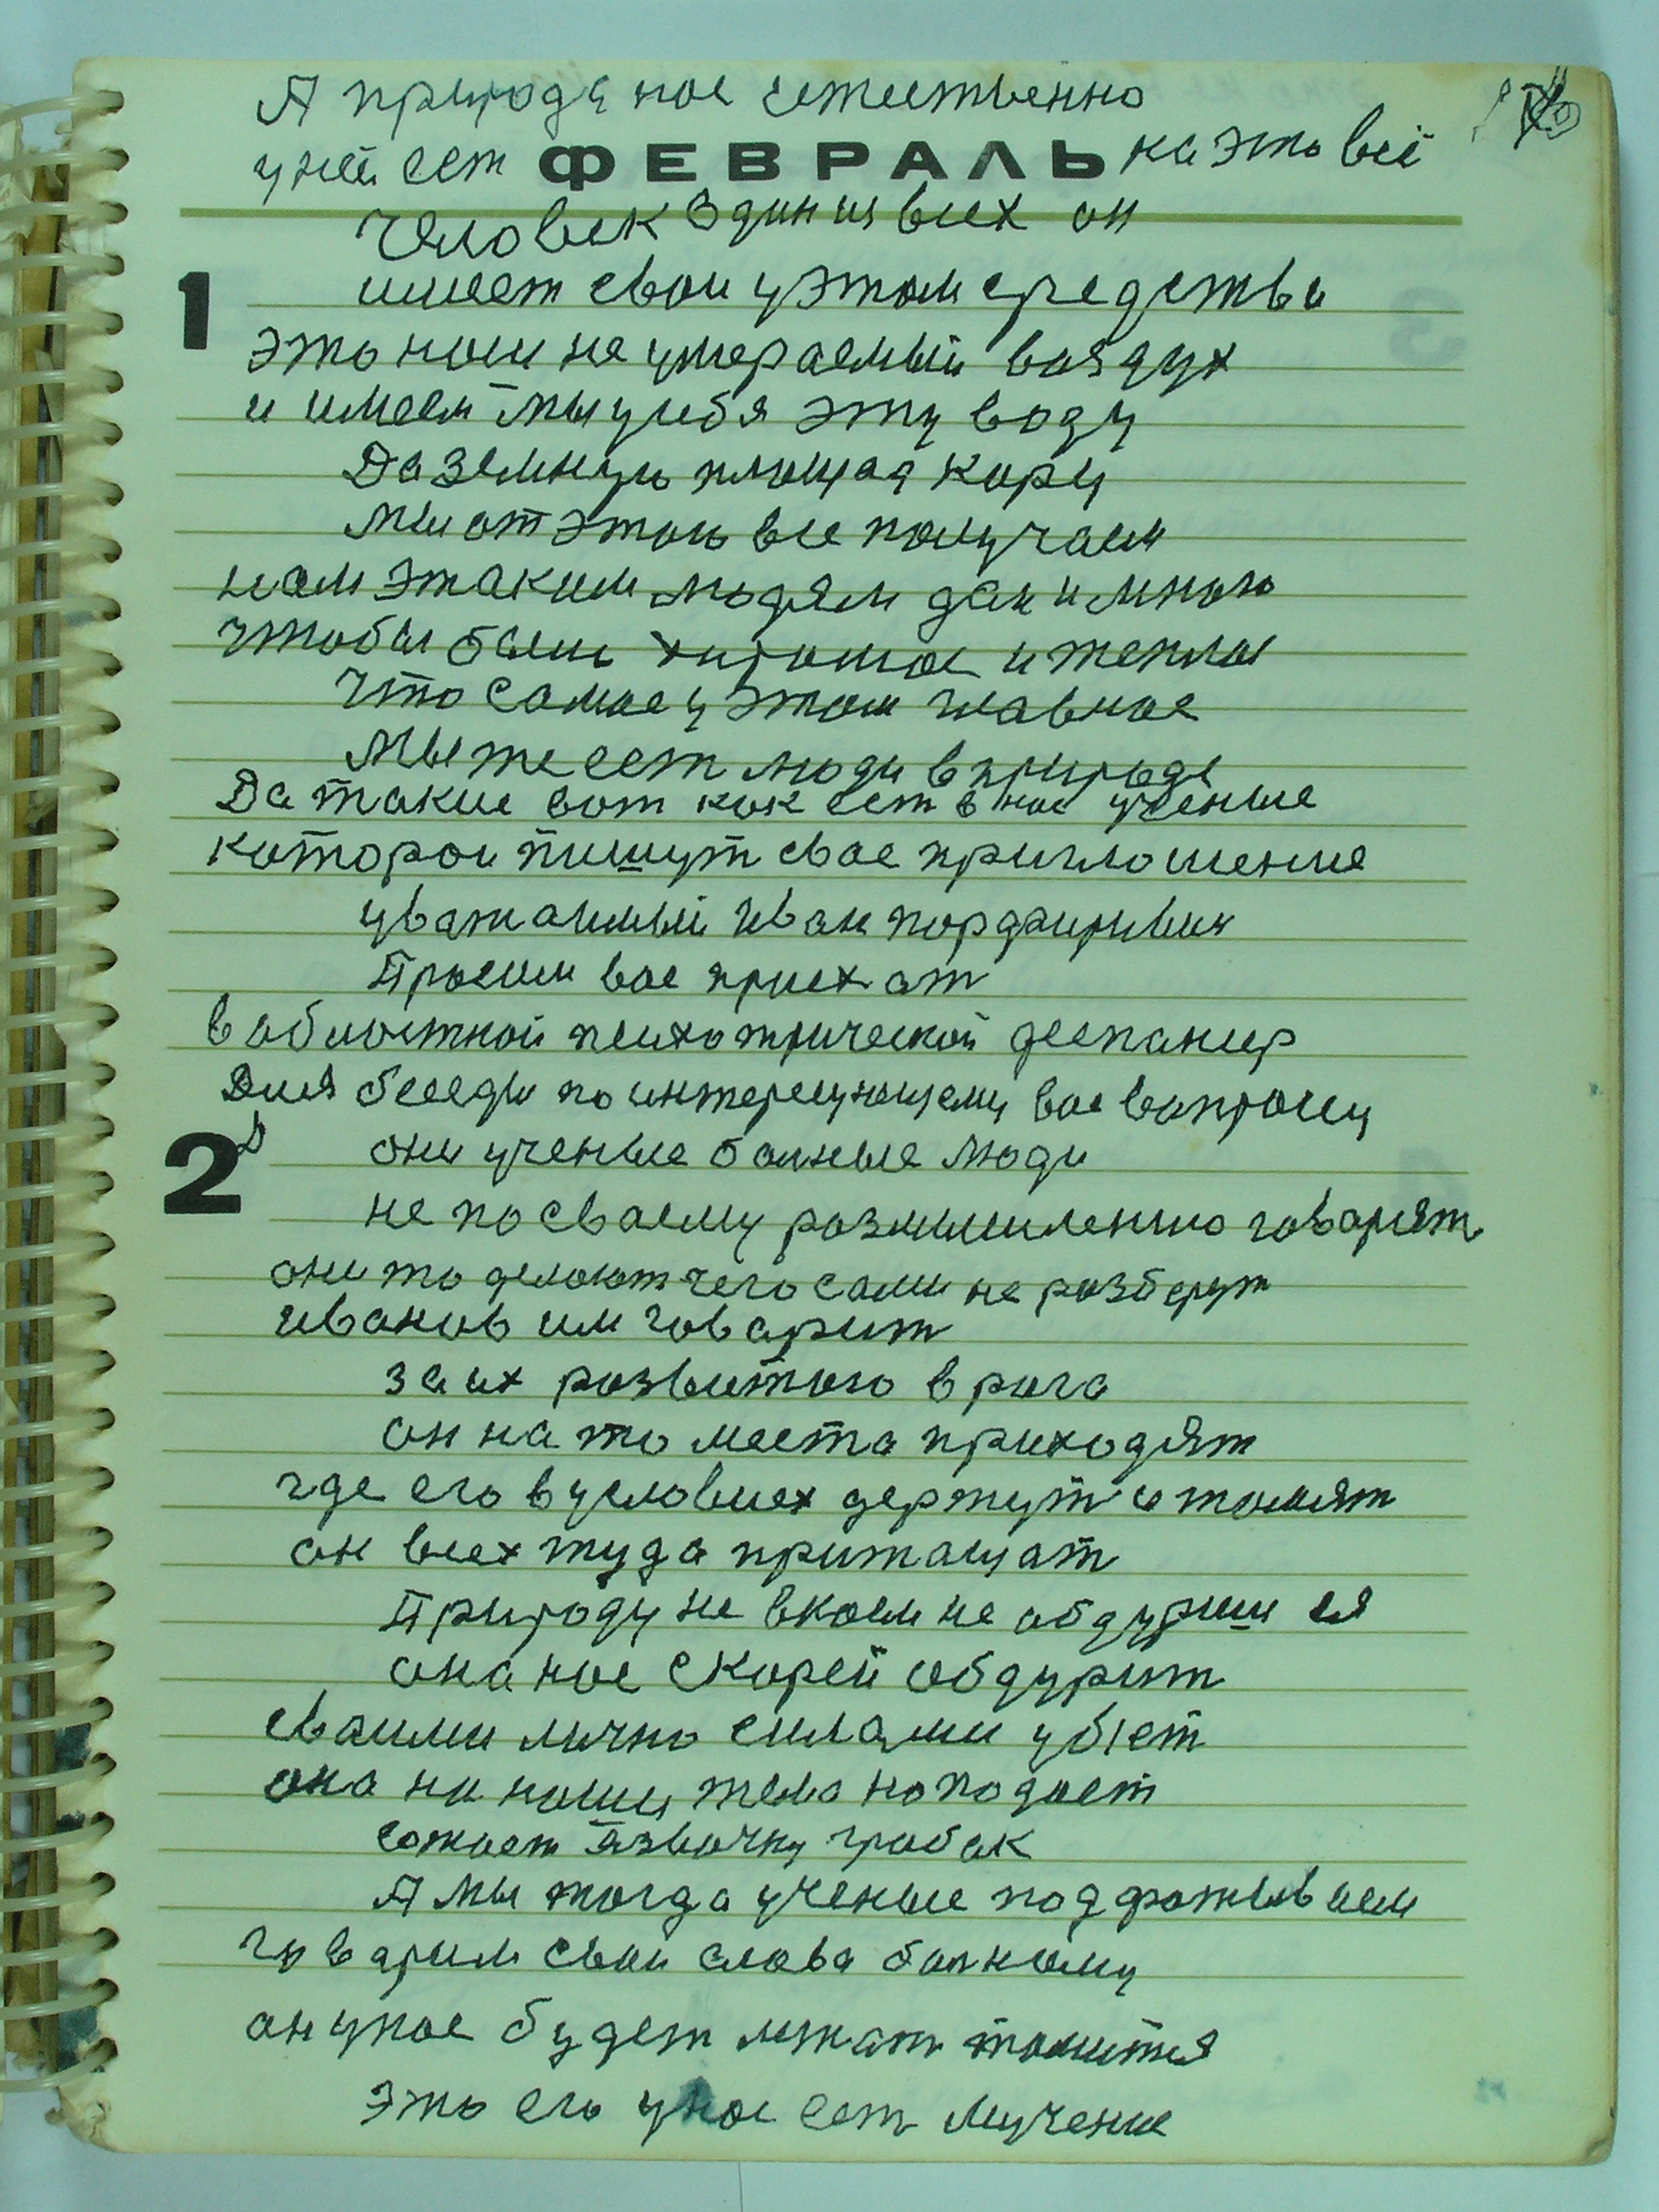 А природа нас естественно
у ней ест ФЕВРАЛЬ на это всё
Человек один из всех он
1
имеет свои у этом средства
это наш не умераемый воздух
и имеем мы у себя эту воду
Да земную площад кору
мы от этого все получаем
нам этаким людям дан и много
чтобы было хорошое и теплое
Что самое у этом главное
Мы же ест люди в природе
Да такие вот как ест в нас ученые
которои пишут свое приглошение
уважаимый Иван порфиривич
Просим вас приехат
в облостной психотрический деспансер
Для беседы по интересующему вас вопросу
2
они ученые болные люди
не по своему розмишлению говорят
они то делают чего сами не розберут
иванов им говорит
за их розвитого врага
он на то места приходят
где его в условиях держут и томят
он всех туда притащат
Природу не в коем не обдуриш ея
она нас скорей обдурит
своими лично силами убьет
она на нашу тело наподает
сожает язвочку грибок
А мы тогда ученые поддрожываем
говорим свои слова болному
он у нас будет лежат томится
это его у нас ест мучение